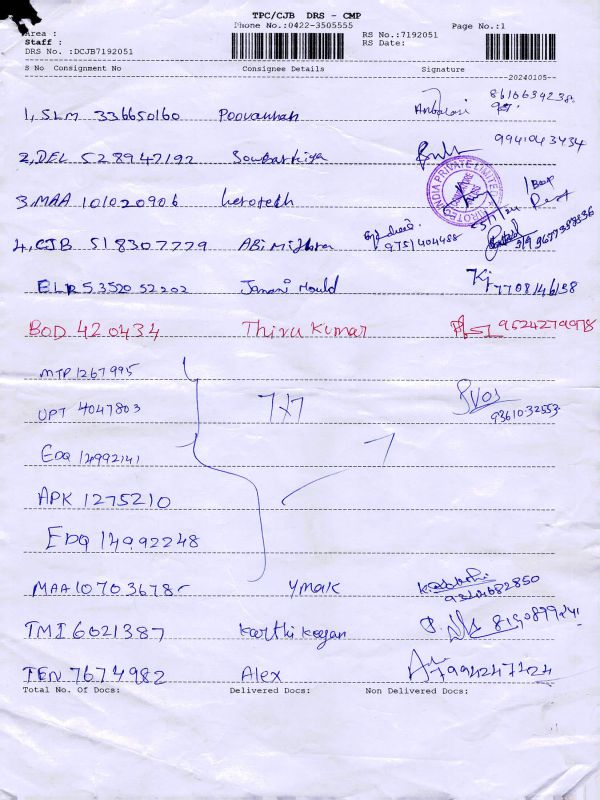 TPC/CJB DRS - CMP
Area : Phone No.:0422-3505555 Page No.:1
Staff : RS No.:7192051
DRS No. :DCJB7192051 RS Date:
S No Consignment No Consignee Details Signature
20240105
1, SLM 336650160 Poovannah 8610634238
2, DEL 528947192 Sowbarkiya 9941043434
3. MAA 101020906 1 Box
4, CJB 518307779 ABi Mithra 9751404488 9677388336
ELR 5352052202 Janani Mould 7708146158
BOD 420434 Thiru Kumar 9524279978
MTP 1267995
UPT 4047803 7x7 9361032553
EDQ 14992141 7
APK 1275210
EDQ 14992248
MAA 10703678 ymak 9344682850
TMI 6021387 Karthi keeyan 8190899241
TEN 7674982 Alex 7994247424
Total No. Of Docs: Delivered Docs: Non Delivered Docs: